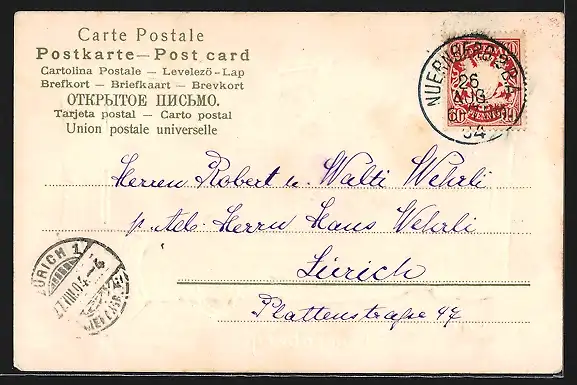 Carte Postale
Postkarte — Post card
Cartolina Postale — Levelezö-Lap
Brefkort — Briefkaart — Brevkort
ОТКРЫТОЕ ПИСЬМО.
Tarjeta postal — Carto postal
Union postale universelle
NUERNBERG
26
AUG
04
PFENNIG
Herren Robert u. Walti Wehrli
p. Adr. Herrn Hans Wehrli
Zürich
Plattenstraße 47
ZÜRICH 1
27.VIII.04